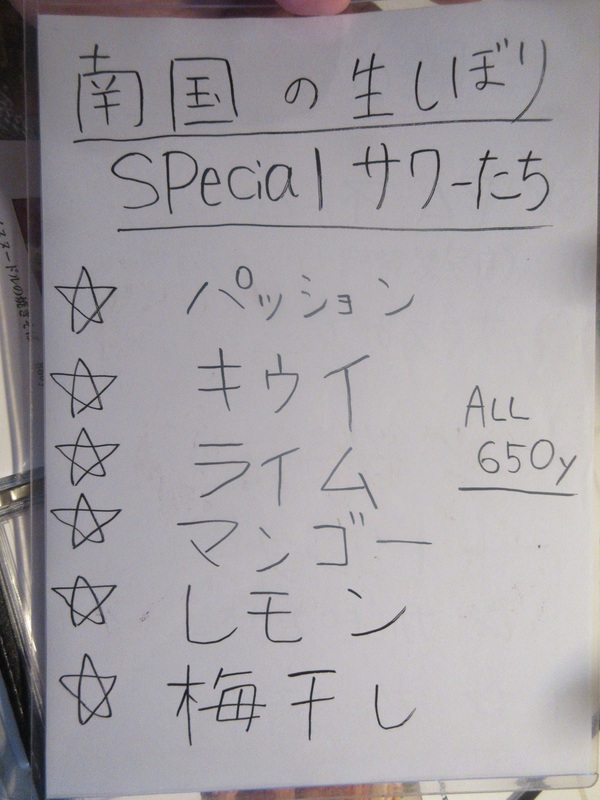 南国の生しぼり
SPecial サワーたち
☆ パッション
☆ キウイ
☆ ライム
☆ マンゴー
☆ レモン
☆ 梅干し
ALL
650y